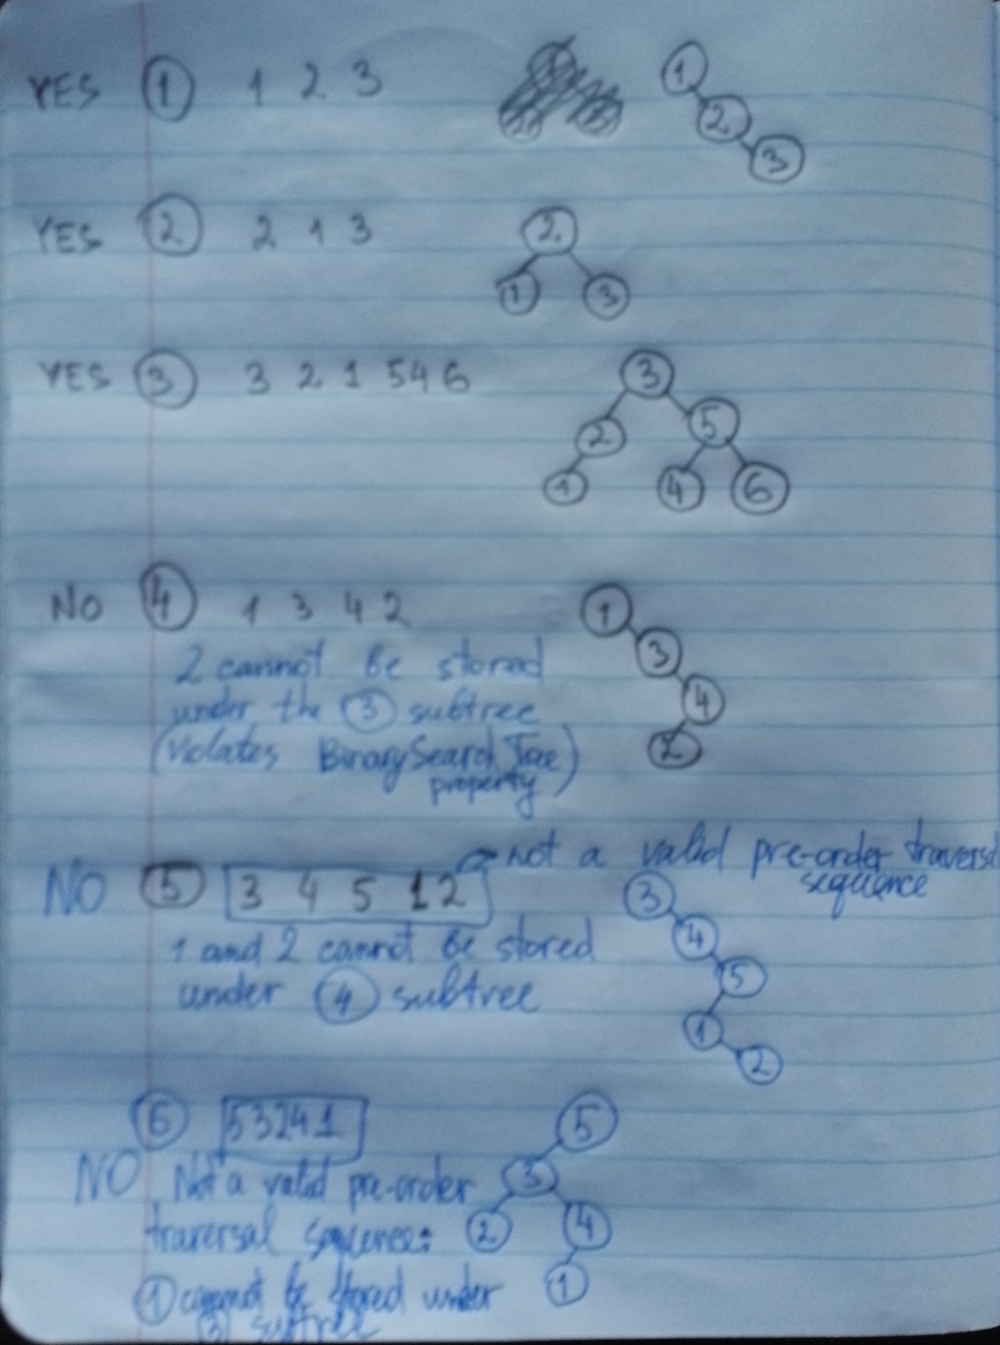 YES 1 1 2 3
1
2
3
YES 2 2 1 3
2
1 3
YES 3 3 2 1 5 4 6
3
2 5
1 4 6
NO 4 1 3 4 2
1
2 cannot be stored
3
under the 3 subtree
4
(violates Binary Search Tree
property)
2
not a valid pre-order traversal
sequence
NO 5 3 4 5 1 2
3
1 and 2 cannot be stored
4
under 4 subtree
5
1
2
6 5 3 2 4 1
5
NO Not a valid pre-order
3
traversal sequence:
2 4
1 cannot be stored under
1
3 subtree